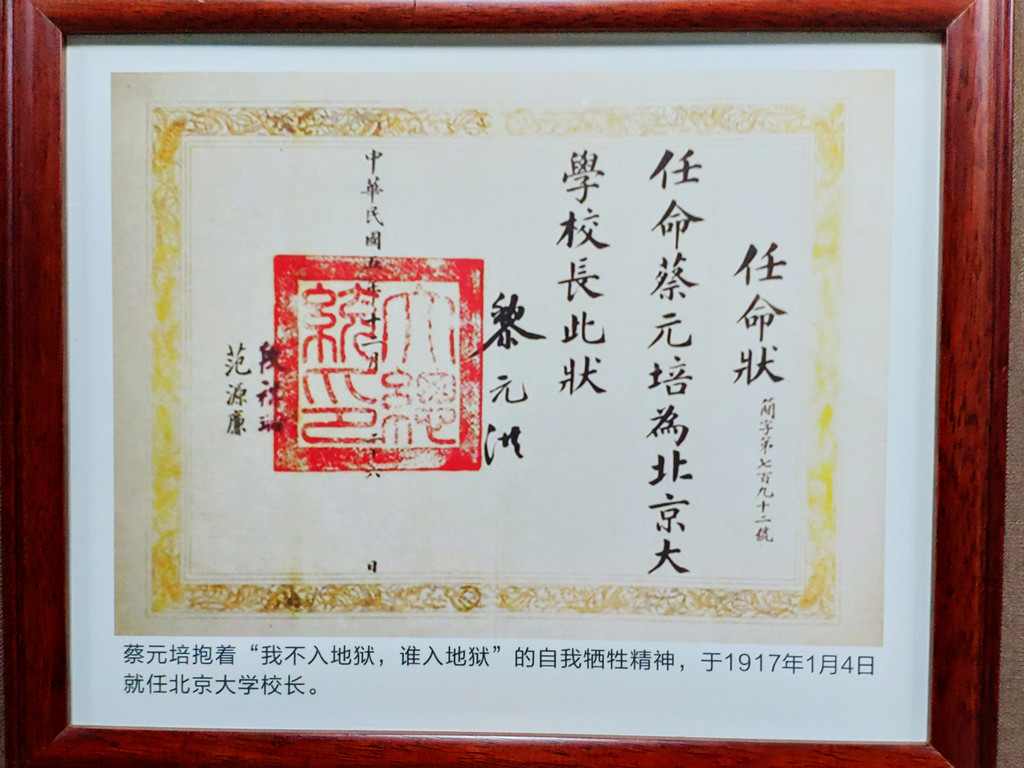 任命狀
簡字第七百九十二號
任命蔡元培為北京大
學校長此狀
黎元洪
大總
統印
中華民國五年十二月二十六日
段祺瑞
范源廉
蔡元培抱着“我不入地狱，谁入地狱”的自我牺牲精神，于1917年1月4日
就任北京大学校长。